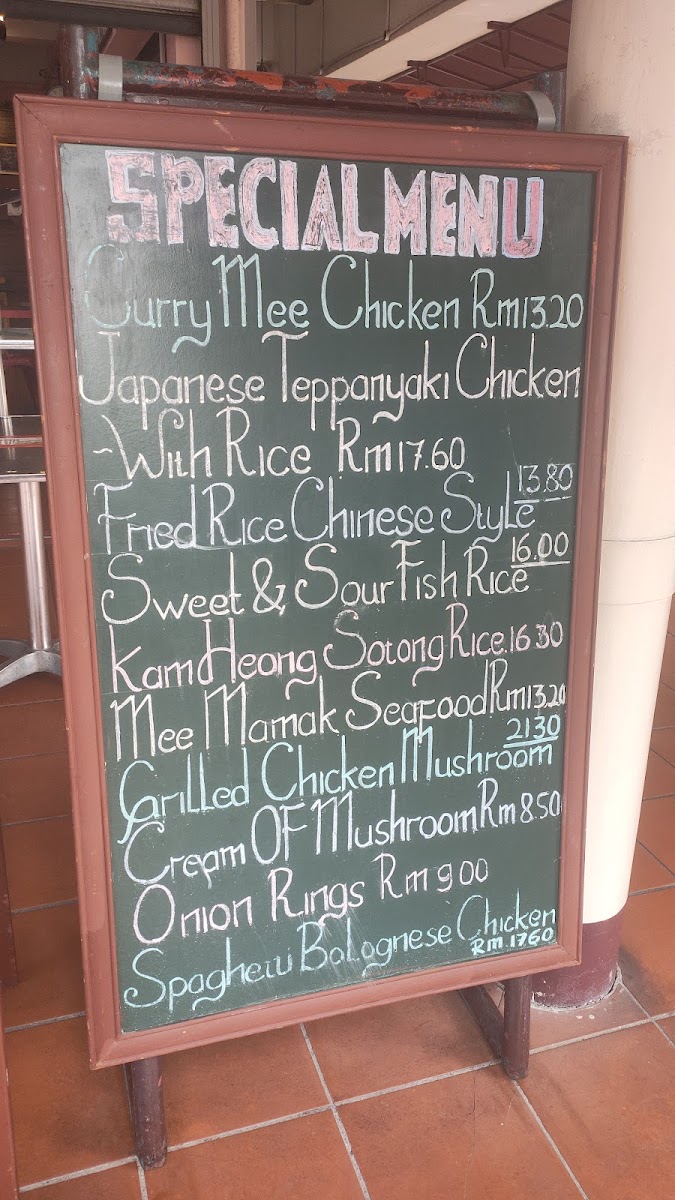 SPECIAL MENU
Curry Mee Chicken Rm13.20
Japanese Teppanyaki Chicken
-With Rice Rm17.60
13.80
Fried Rice Chinese Style
16.00
Sweet & Sour Fish Rice
Kam Heong Sotong Rice.16.30
Mee Mamak Seafood Rm13.20
2130
Grilled Chicken Mushroom
Cream OF Mushroom Rm 8.50
Onion Rings Rm 9 00
Spaghetti Bolognese Chicken
Rm.1760